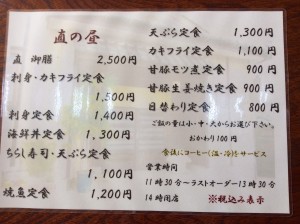 直の昼
直 御膳 2,500円
刺身・カキフライ定食
1,500円
刺身定食 1,400円
海鮮丼定食 1,300円
ちらし寿司・天ぷら定食
1,100円
焼魚定食 1,200円
天ぷら定食 1,300円
カキフライ定食 1,100円
甘豚モツ煮定食 900円
甘豚生姜焼き定食 900円
日替わり定食 800円
ご飯の量は小・中・大からお選び下さい。
おかわり100円
食後にコーヒー(温・冷)付サービス
営業時間
11時30分～ラストオーダー13時30分
14時閉店 ※税込み表示